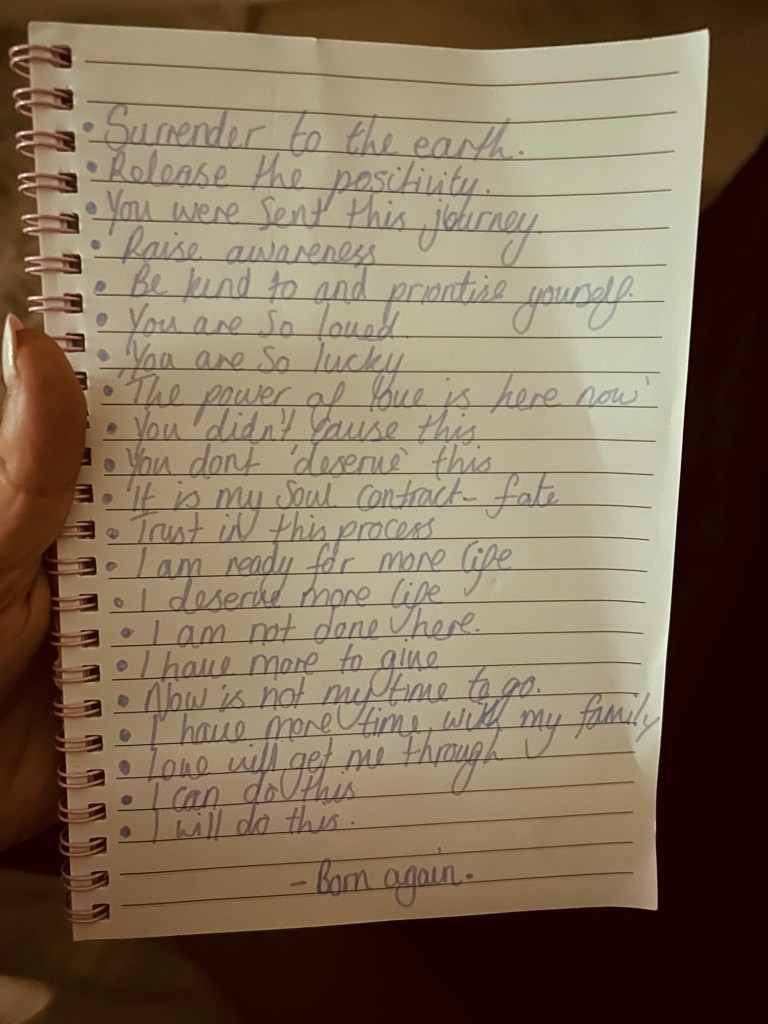 • Surrender to the earth.
• Release the positivity.
• You were sent this journey.
• Raise awareness
• Be kind to and prioritise yourself.
• You are so loved.
• You are so lucky
• 'The power of love is here now'
• You didn't cause this
• You dont 'deserve' this
• It is my soul contract - fate
• Trust in this process
• I am ready for more life
• I deserve more life
• I am not done here.
• I have more to give
• Now is not my time to go.
• I have more time with my family
• Love will get me through
• I can do this
• I will do this.
- Born again.